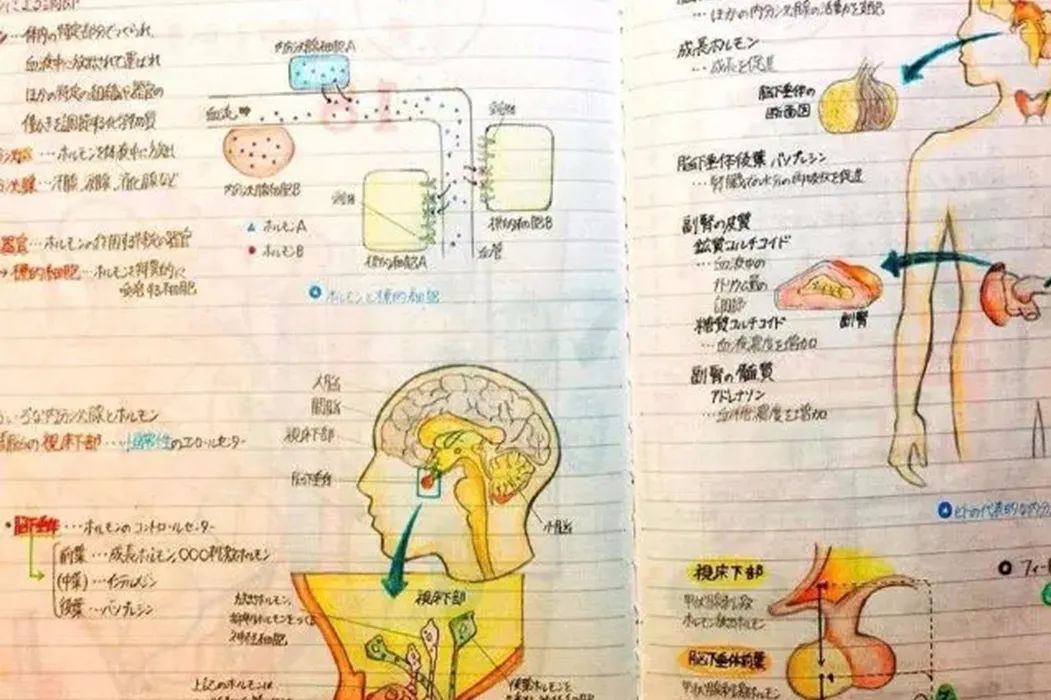 …体内の特定部分でつくられ、
血液中に放出されて運ばれ
ほかの特定の組織や器官の
働きを調節する化学物質
…ホルモンを体液中に放出
…汗腺、涙腺、消化腺など
器官…ホルモンの作用する特定の器官
→標的細胞…ホルモンを特異的に
内分泌腺細胞A
血流
内分泌腺細胞B
▲ ホルモンA
● ホルモンB
受容体
受容体
標的細胞A
標的細胞B
血管
ホルモンと標的細胞
な内分泌腺とホルモン
の視床下部…恒常性のコントロールセンター
・脳下垂体…ホルモンのコントロールセンター
前葉…成長ホルモン、〇〇〇刺激ホルモン
(中葉)…インテルメジン
後葉…バソプレシン
大脳
間脳
視床下部
脳下垂体
小脳
視床下部
放出ホルモン、
神経細胞
上記のホルモンは
後葉ホルモンを
…ほかの内分泌腺の活動を支配
成長ホルモン
…成長を促進
脳下垂体の
断面図
脳下垂体後葉 バソプレシン
…腎臓での水分の再吸収を促進
副腎の皮質
鉱質コルチコイド
…血液中の
ナトリウム量の
調節
糖質コルチコイド
…血液濃度を増加
副腎
副腎の髄質
アドレナリン
…血糖濃度を増加
ヒトの代表的な内分
フィー
視床下部
甲状腺刺激
ホルモン放出ホルモン
脳下垂体前葉
甲状腺刺激ホルモン